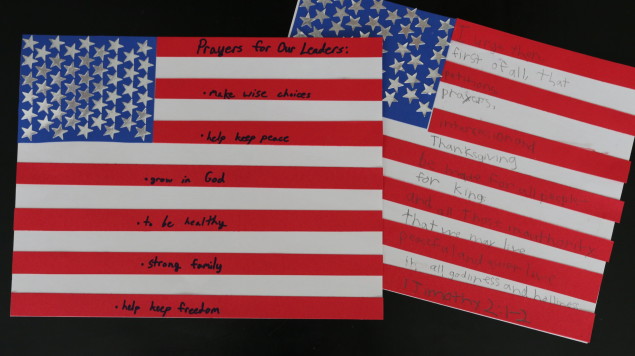 Prayers for Our Leaders:
• make wise choices
• help keep peace
• grow in God
• to be healthy
• strong family
• help keep freedom
first of all, that
prayers,
Thanksgiving
for king
and all those in authority
that we may live
peaceful and
in all godliness and holiness
1 Timothy 2:1-2